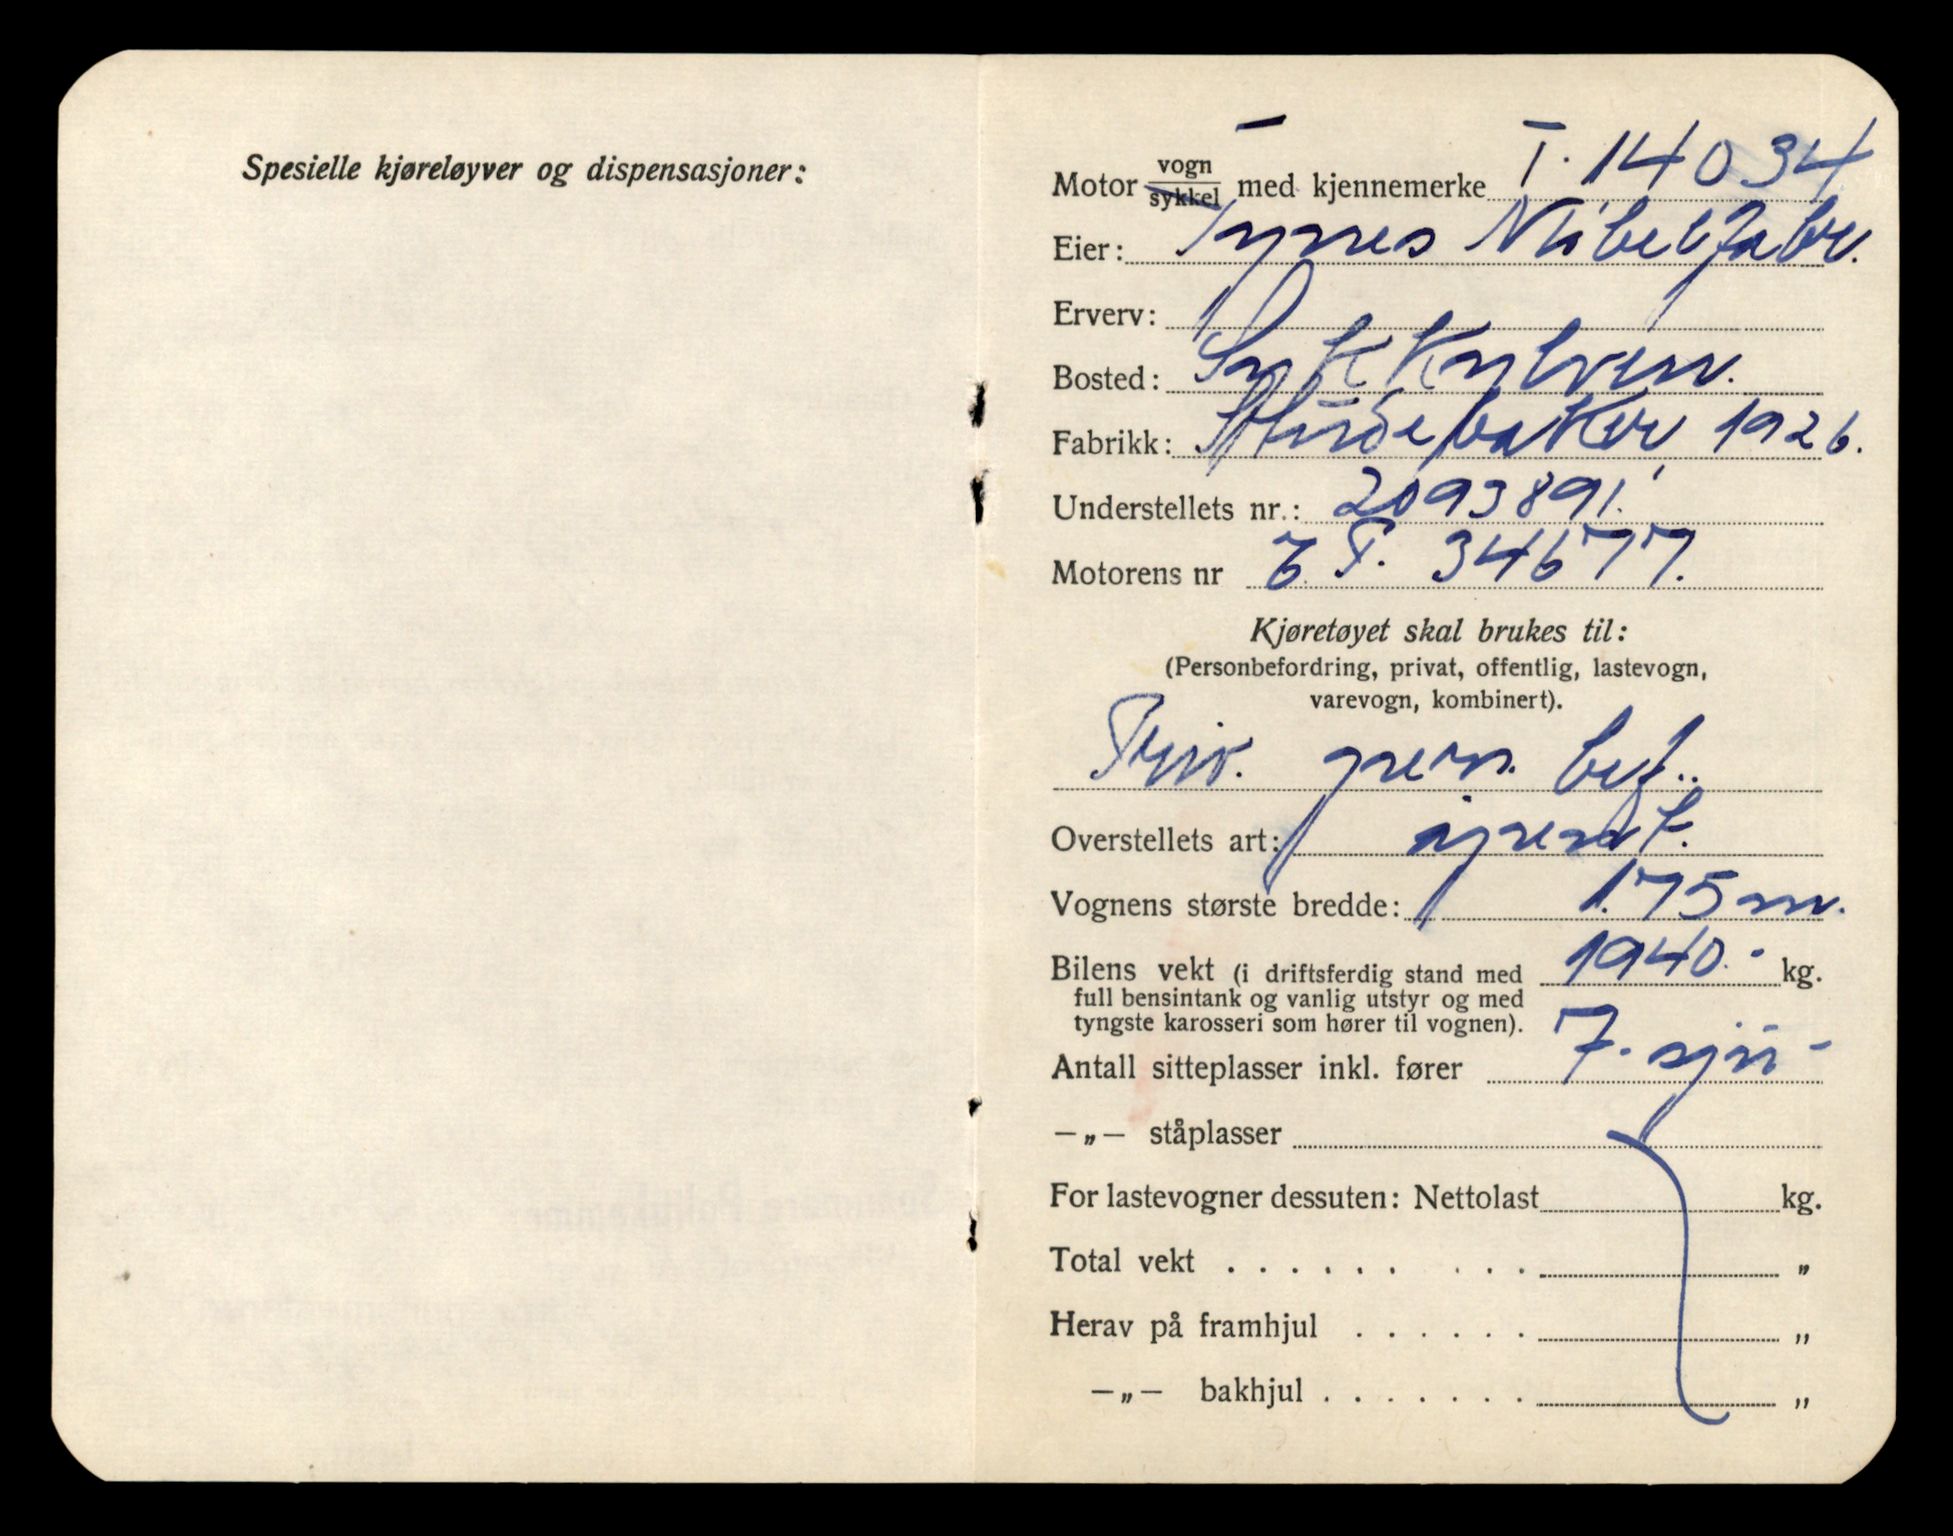 Spesielle kjøreløyver og dispensasjoner:
Motor vogn/sykkel med kjennemerke T. 14034
Eier: Tynes Möbelfabr.
Erverv:
Bosted: Sykkylven.
Fabrikk: Studebaker, 1926.
Understellets nr.: 2093891.
Motorens nr 34677.
Kjøretøyet skal brukes til:
(Personbefordring, privat, offentlig, lastevogn,
varevogn, kombinert).
Priv. pers. bef.
Overstellets art: åpent.
Vognens største bredde: 1.75 m.
Bilens vekt (i driftsferdig stand med 1940.- kg.
full bensintank og vanlig utstyr og med
tyngste karosseri som hører til vognen).
Antall sitteplasser inkl. fører 7. sju -
—„— ståplasser
For lastevogner dessuten: Nettolast kg.
Total vekt . . . . . . . . . „
Herav på framhjul . . . . . . „
—„— bakhjul . . . . . . . „